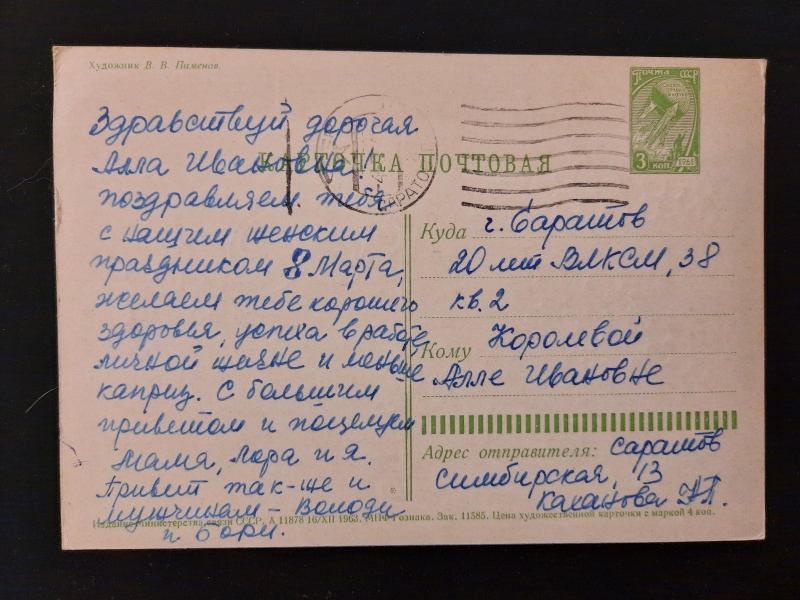 Художник В. В. Пименов.
Почта СССР
3 коп
1961
КАРТОЧКА ПОЧТОВАЯ
Здравствуй дорогая
Алла Ивановна!
поздравляем тебя
с нашим женским
праздником 8 Марта,
желаем тебе хорошего
здоровья, успеха в работе,
личной жизне и меньше
каприз. С большим
приветом и поцелуем
Мама, Лора и я.
Привет так-же и
мужчинам - Володи
и Бори.
Куда г. Саратов
20 лет ВЛКСМ, 38
кв. 2
Кому Королевой
Алле Ивановне
Адрес отправителя: Саратов
Симбирская, 13
Каханова
Издание Министерства связи СССР. А 11878 16/XII 1963. МПФ Гознака. Зак. 11585. Цена художественной карточки с маркой 4 коп.